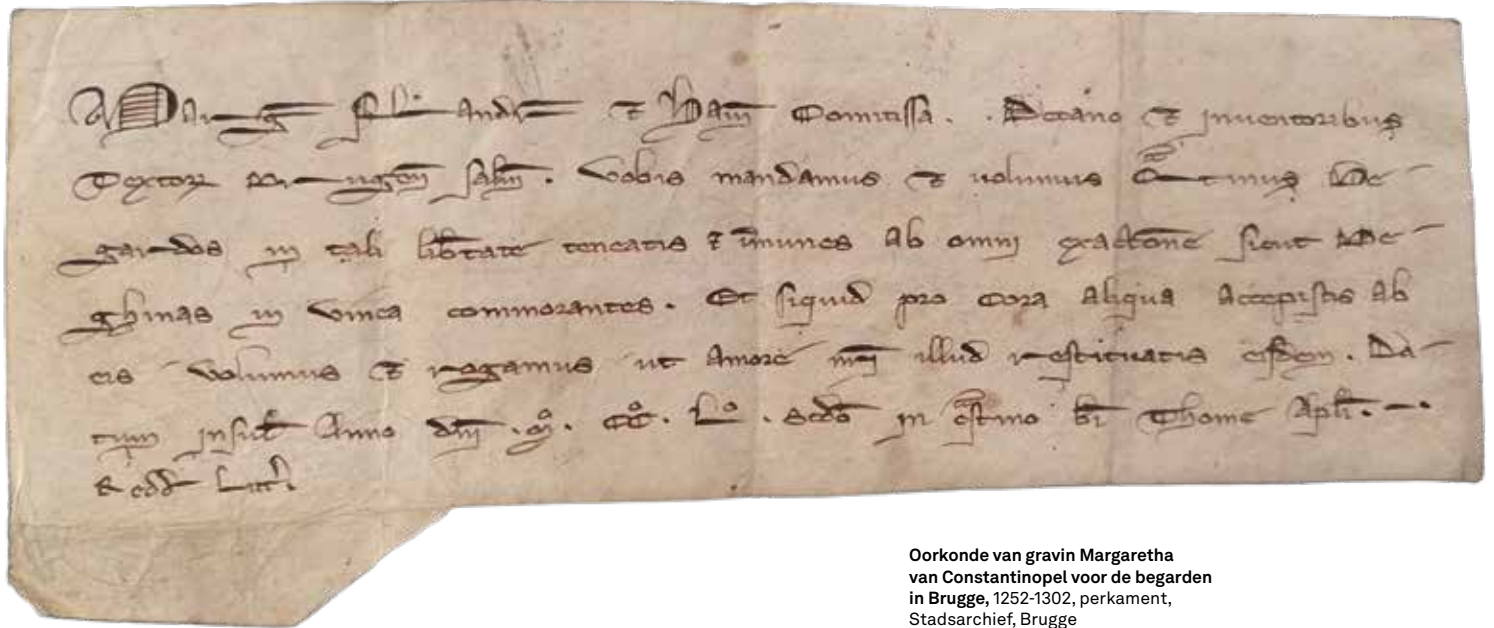 Marg Flandr ⁊ Hayn Comitissa . . Decano ⁊ inventoribus
Textor Brugen salm . Vobis mandamus ⁊ volumus Be-
gardos in tali libtate teneatis ⁊ imunes ab omni exactione sicut Be-
ghinas in vinea commorantes . Et siquid pro Cora aliqua accepistis ab
eis volumus ⁊ rogamus ut amore illud restituatis eisdem . Da-
tum Insul Anno dni . m̊ . CC̊ . L̊ . scdo in cstino bi Thome Apli .
Redd Littr
Oorkonde van gravin Margaretha
van Constantinopel voor de begarden
in Brugge, 1252-1302, perkament,
Stadsarchief, Brugge